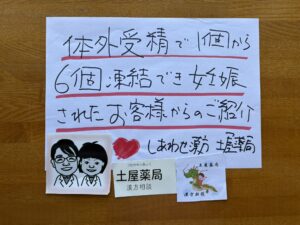 体外受精で1個から
6個凍結でき妊娠
されたお客様からのご紹介
しあわせ漢方 土屋薬局
土屋薬局
漢方相談
土屋薬局
漢方相談